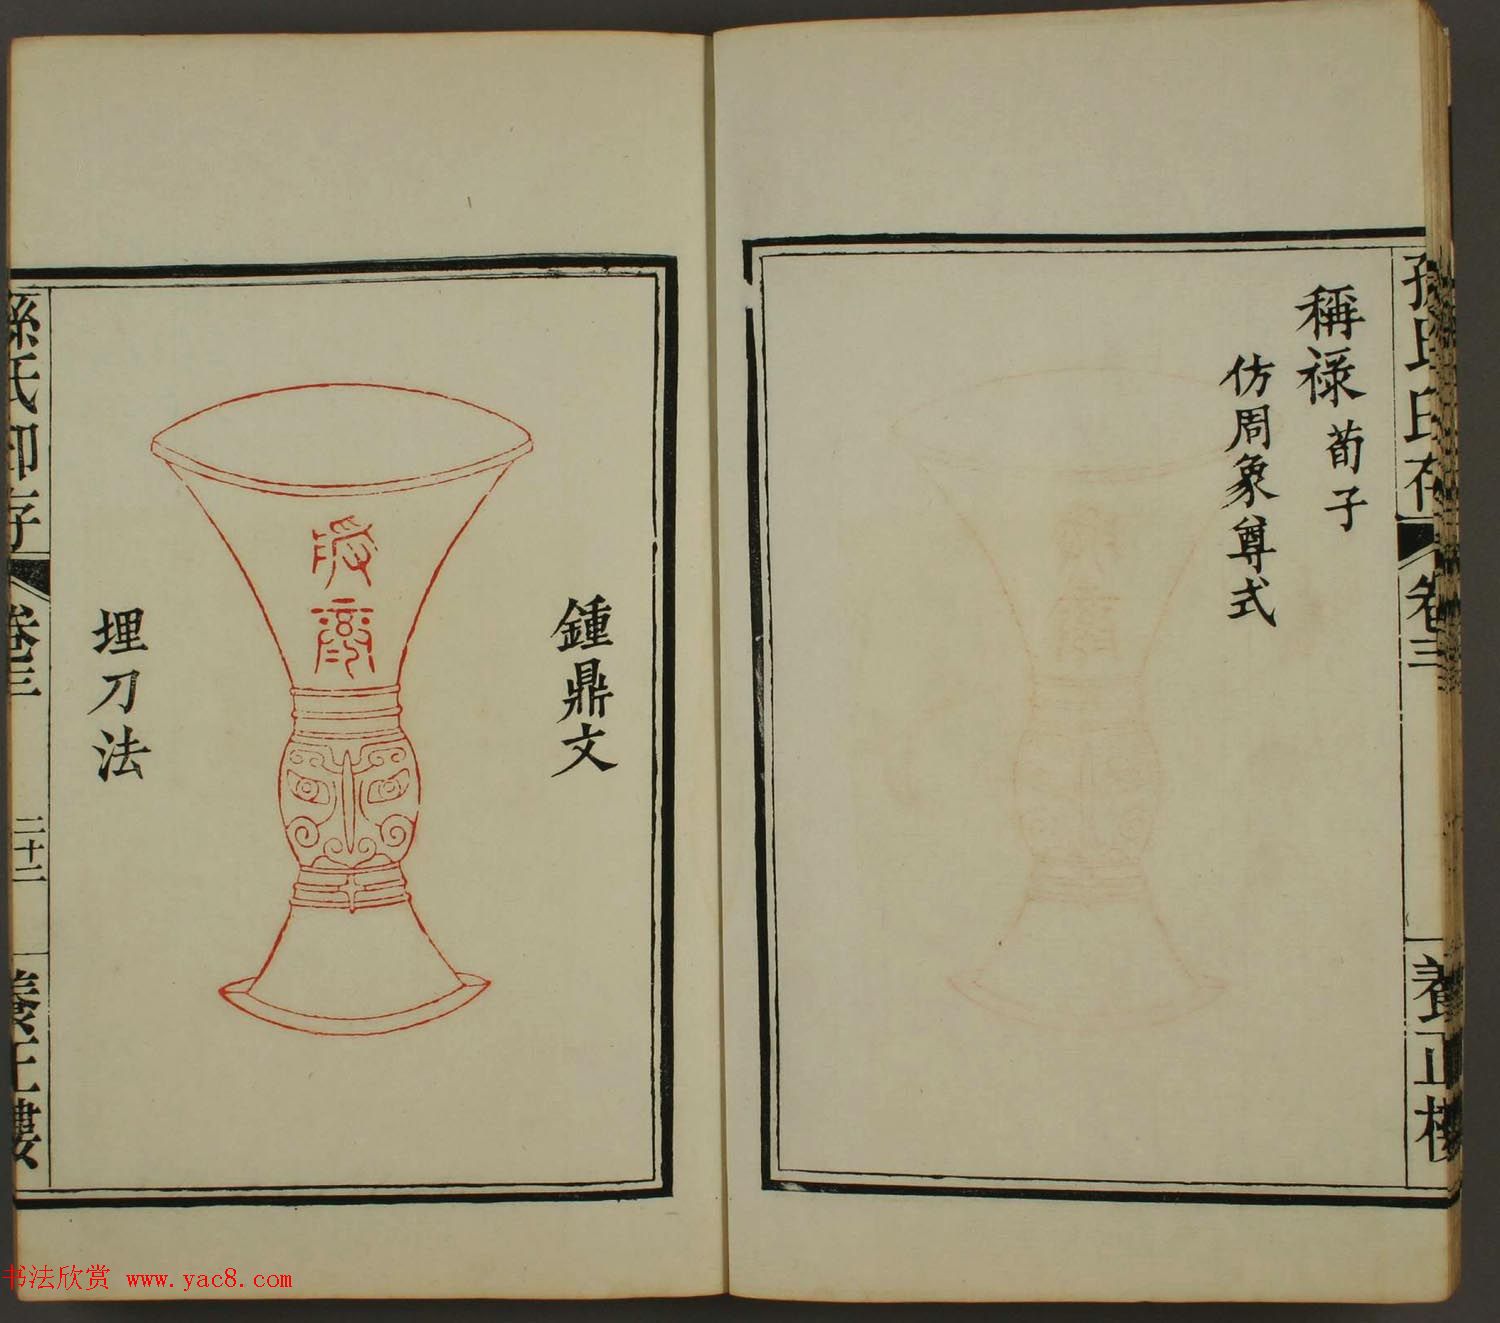 稱祿 荀子
仿周象尊式
孫氏印存
卷三
養正樓
鍾鼎文
埋刀法
孫氏印存
卷三
二十二
養正樓
书法欣赏 www.yac8.com